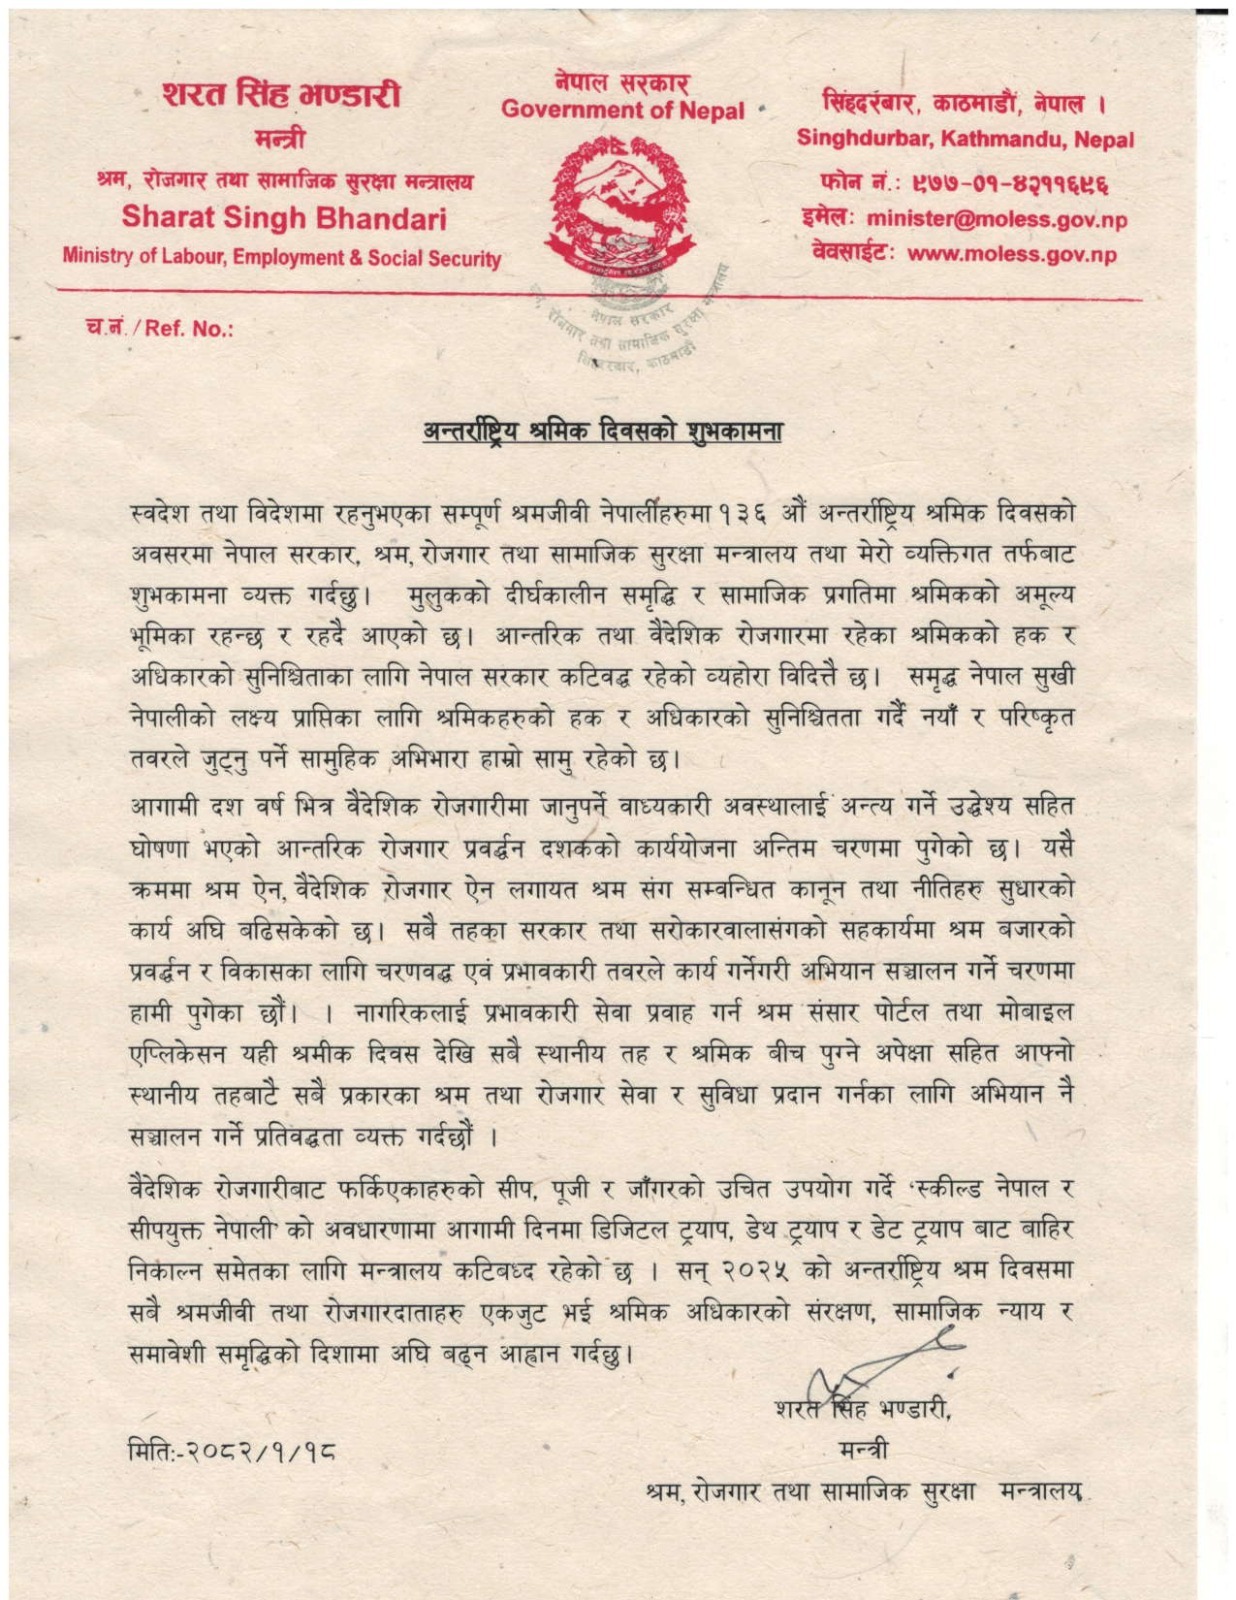 शरत सिंह भण्डारी
मन्त्री
श्रम, रोजगार तथा सामाजिक सुरक्षा मन्त्रालय
Sharat Singh Bhandari
Ministry of Labour, Employment & Social Security
नेपाल सरकार
Government of Nepal
सिंहदरबार, काठमाडौं, नेपाल ।
Singhdurbar, Kathmandu, Nepal
फोन नं.: ९७७-०१-४२११६९६
इमेल: minister@moless.gov.np
वेवसाईट: www.moless.gov.np
नेपाल सरकार
रोजगार तथा सामाजिक सुरक्षा मन्त्रालय
काठमाडौं
च.नं. / Ref. No.:
अन्तर्राष्ट्रिय श्रमिक दिवसको शुभकामना
स्वदेश तथा विदेशमा रहनुभएका सम्पूर्ण श्रमजीवी नेपालीहरुमा १३६ औं अन्तर्राष्ट्रिय श्रमिक दिवसको
अवसरमा नेपाल सरकार, श्रम, रोजगार तथा सामाजिक सुरक्षा मन्त्रालय तथा मेरो व्यक्तिगत तर्फबाट
शुभकामना व्यक्त गर्दछु। मुलुकको दीर्घकालीन समृद्धि र सामाजिक प्रगतिमा श्रमिकको अमूल्य
भूमिका रहन्छ र रहदै आएको छ। आन्तरिक तथा वैदेशिक रोजगारमा रहेका श्रमिकको हक र
अधिकारको सुनिश्चिताका लागि नेपाल सरकार कटिवद्ध रहेको व्यहोरा विदित्तै छ। समृद्ध नेपाल सुखी
नेपालीको लक्ष्य प्राप्तिका लागि श्रमिकहरुको हक र अधिकारको सुनिश्चितता गर्दै नयाँ र परिष्कृत
तवरले जुट्नु पर्ने सामुहिक अभिभारा हाम्रो सामु रहेको छ।
आगामी दश वर्ष भित्र वैदेशिक रोजगारीमा जानुपर्ने वाध्यकारी अवस्थालाई अन्त्य गर्ने उद्धेश्य सहित
घोषणा भएको आन्तरिक रोजगार प्रवर्द्धन दशकको कार्ययोजना अन्तिम चरणमा पुगेको छ। यसै
क्रममा श्रम ऐन, वैदेशिक रोजगार ऐन लगायत श्रम संग सम्वन्धित कानून तथा नीतिहरु सुधारको
कार्य अघि बढिसकेको छ। सबै तहका सरकार तथा सरोकारवालासंगको सहकार्यमा श्रम बजारको
प्रवर्द्धन र विकासका लागि चरणवद्ध एवं प्रभावकारी तवरले कार्य गर्नेगरी अभियान सञ्चालन गर्ने चरणमा
हामी पुगेका छौं। । नागरिकलाई प्रभावकारी सेवा प्रवाह गर्न श्रम संसार पोर्टल तथा मोबाइल
एप्लिकेसन यही श्रमीक दिवस देखि सबै स्थानीय तह र श्रमिक बीच पुग्ने अपेक्षा सहित आफ्नो
स्थानीय तहबाटै सबै प्रकारका श्रम तथा रोजगार सेवा र सुविधा प्रदान गर्नका लागि अभियान नै
सञ्चालन गर्ने प्रतिवद्धता व्यक्त गर्दछौं ।
वैदेशिक रोजगारीबाट फर्किएकाहरुको सीप, पूजी र जाँगरको उचित उपयोग गर्दे 'स्कील्ड नेपाल र
सीपयुक्त नेपाली' को अवधारणामा आगामी दिनमा डिजिटल ट्रयाप, डेथ ट्रयाप र डेट ट्रयाप बाट वाहिर
निकाल्न समेतका लागि मन्त्रालय कटिबध्द रहेको छ । सन् २०२५ को अन्तर्राष्ट्रिय श्रम दिवसमा
सबै श्रमजीवी तथा रोजगारदाताहरु एकजुट भई श्रमिक अधिकारको संरक्षण, सामाजिक न्याय र
समावेशी समृद्धिको दिशामा अघि बढ्न आह्वान गर्दछु।
शरत सिंह भण्डारी,
मिति:-२०८२/१/१८
मन्त्री
श्रम, रोजगार तथा सामाजिक सुरक्षा मन्त्रालय